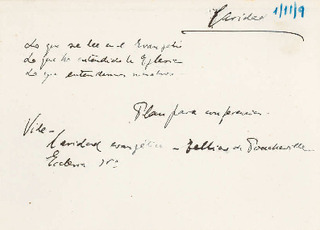 Caridad
1/11/9
Lo que se lee en el Evangelio
Lo que ha entendido la Iglesia
Lo que entendemos nosotros.
Plan para conferencias.
Vida -
Caridad evangélica -